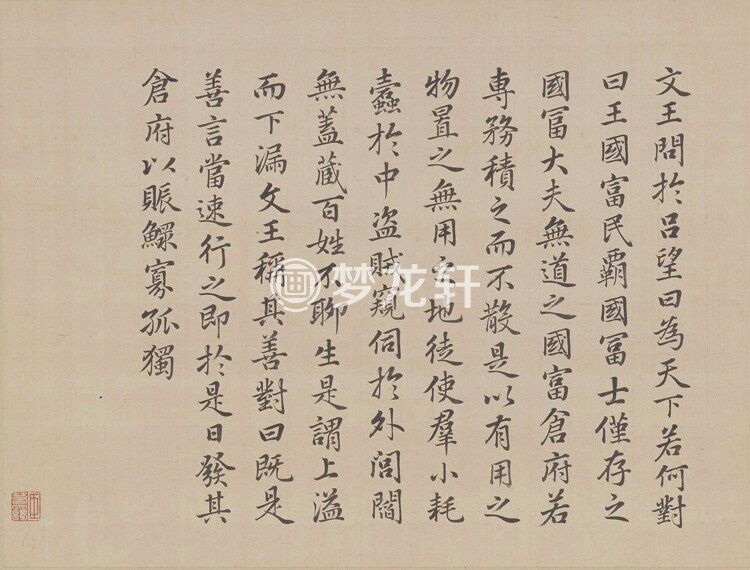 文王問於吕望曰為天下若何對
曰王國富民覇國冨士僅存之
國冨大夫無道之國富倉府若
専務積之而不散是以有用之
物置之無用之地徒使羣小耗
蠹於中盗賊窺伺於外閭閻
無蓋蔵百姓不聊生是謂上溢
而下漏文王稱其善對曰既是
善言當速行之即於是日發其
倉府以賑鰥寡孤獨
画 梦龙轩